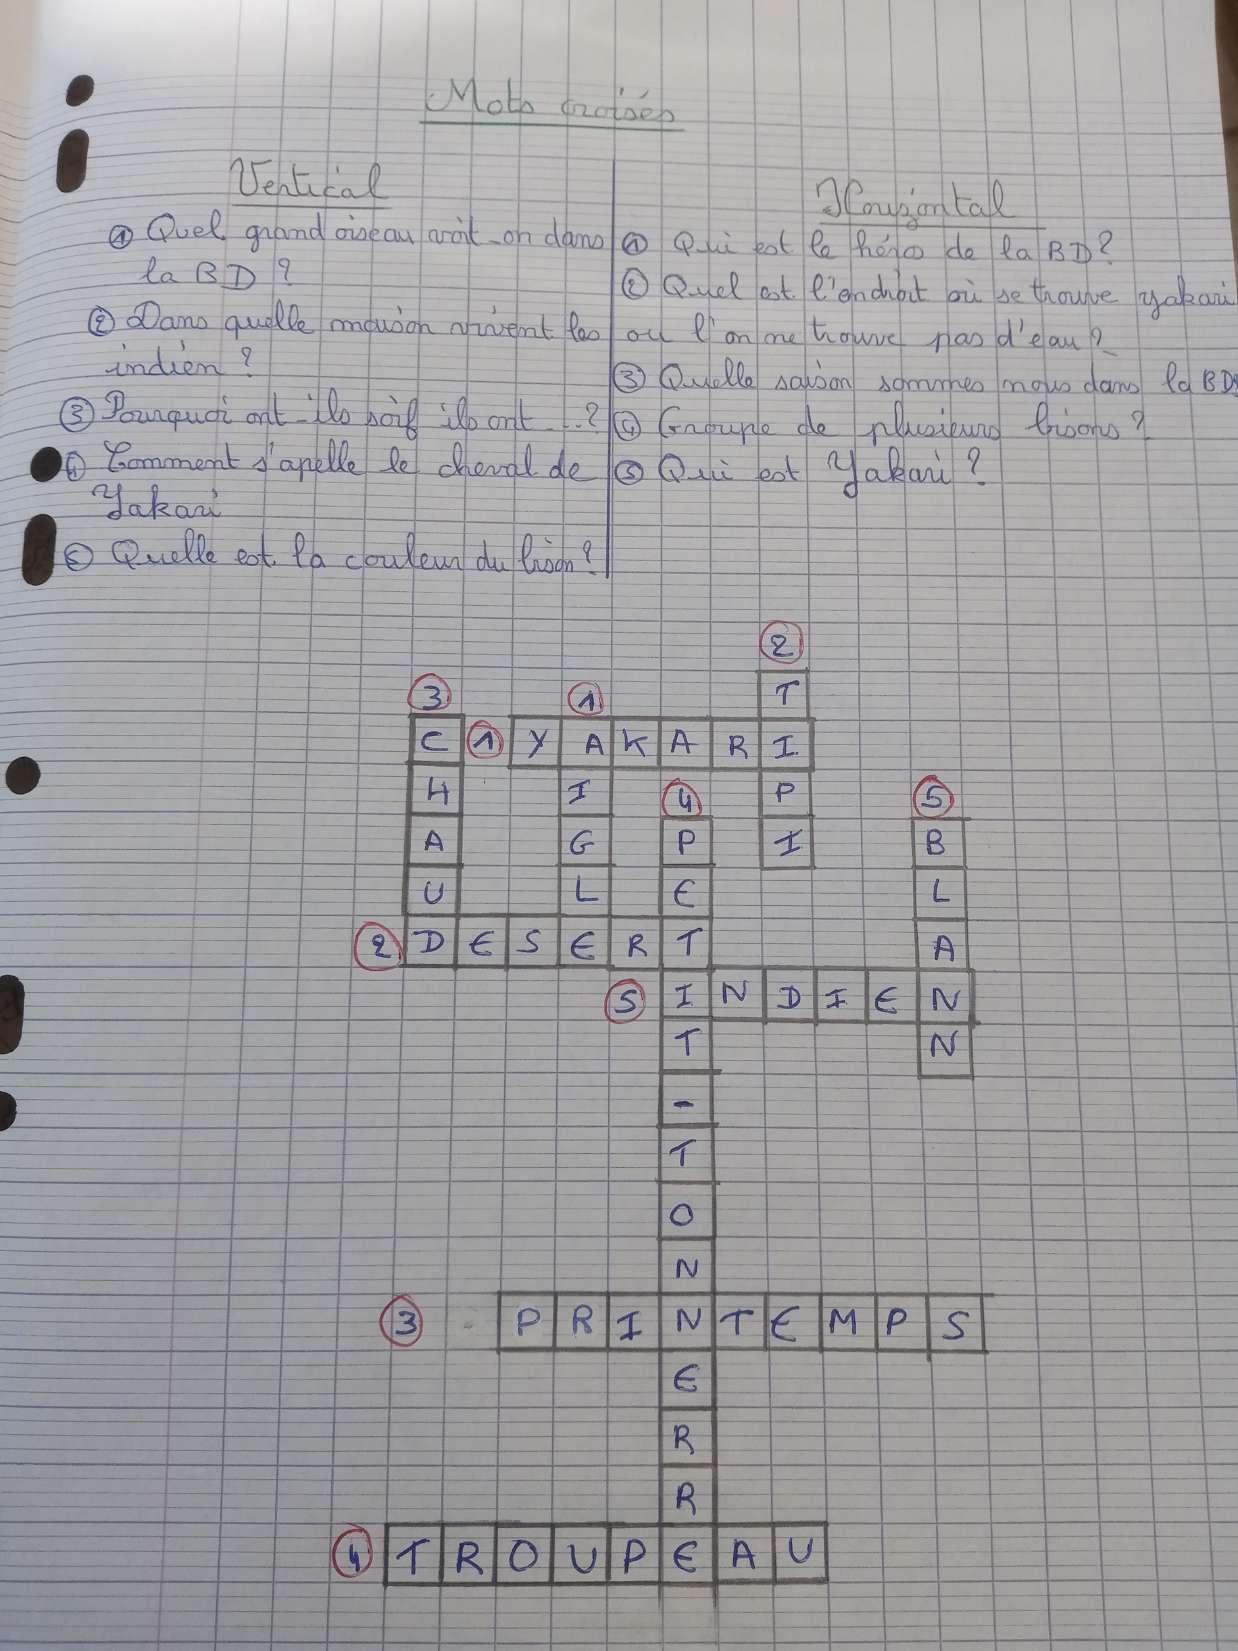 Mots croisés
Vertical
① Quel grand oiseau voit-on dans
la BD ?
② Dans quelle maison vivent les
indien ?
③ Pourquoi ont-ils soif ils ont ...?
④ Comment s'apelle le cheval de
Yakari
⑤ Quelle est la couleur du bison ?
Horizontal
① Qui est le héros de la BD ?
② Quel est l'endroit où se trouve yakari
ou l'on ne trouve pas d'eau ?
③ Quelle saison sommes nous dans la BD
④ Groupe de plusieurs bisons ?
⑤ Qui est Yakari ?
②
③ ① T
C ① Y A K A R I
H I ④ P ⑤
A G P I B
U L E L
② D E S E R T A
⑤ I N D I E N
T N
-
T
O
N
③ P R I N T E M P S
E
R
R
④ T R O U P E A U